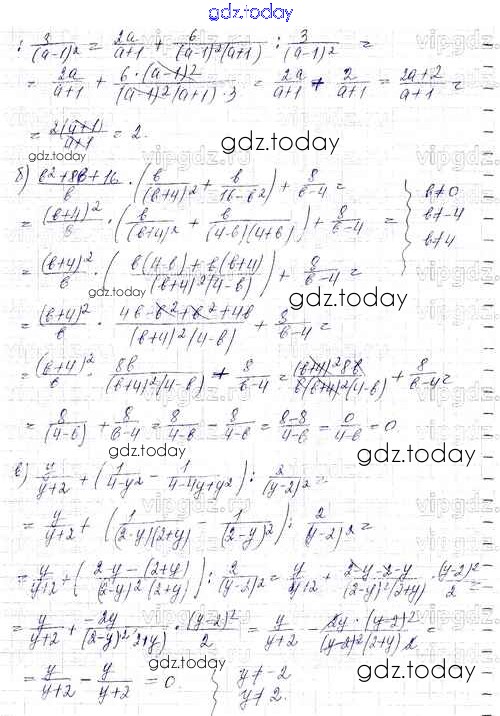 gdz.today
: 3/(a-1)² = 2a/(a+1) + 6/((a-1)²(a+1)) : 3/(a-1)² =
= 2a/(a+1) + 6·(a-1)²/((a-1)²(a+1)·3) = 2a/(a+1) + 2/(a+1) = (2a+2)/(a+1) =
= 2(a+1)/(a+1) = 2.
gdz.today
gdz.today
б) (b²+8b+16)/b · (b/(b+4)² + b/(16-b²)) + 8/(b-4) =
b≠0
= (b+4)²/b · (b/(b+4)² + b/((4-b)(4+b))) + 8/(b-4) =
b≠-4
b≠4
= (b+4)²/b · ((b(4-b)+b(b+4))/((b+4)²(4-b))) + 8/(b-4) =
gdz.today
gdz.today
gdz.today
= (b+4)²/b · (4b-b²+b²+4b)/((b+4)²(4-b)) + 8/(b-4) =
= (b+4)²/b · 8b/((b+4)²(4-b)) + 8/(b-4) = (b+4)²8b/(b(b+4)²(4-b)) + 8/(b-4) =
= 8/(4-b) + 8/(b-4) = 8/(4-b) - 8/(4-b) = (8-8)/(4-b) = 0/(4-b) = 0
gdz.today
gdz.today
в) y/(y+2) + (1/(4-y²) - 1/(4-4y+y²)) : 2/(y-2)² =
= y/(y+2) + (1/((2-y)(2+y)) - 1/(2-y)²) : 2/(y-2)² =
gdz.today
= y/(y+2) + ((2-y-(2+y))/((2-y)²(2+y))) : 2/(y-2)² = y/(y+2) + (2-y-2-y)/((2-y)²(2+y)) · (y-2)²/2 =
= y/(y+2) + -2y/((2-y)²(2+y)) · (y-2)²/2 = y/(y+2) - 2y·(y-2)²/((y-2)²(2+y)2) =
gdz.today
gdz.today
= y/(y+2) - y/(y+2) = 0.
y≠-2
y≠2.